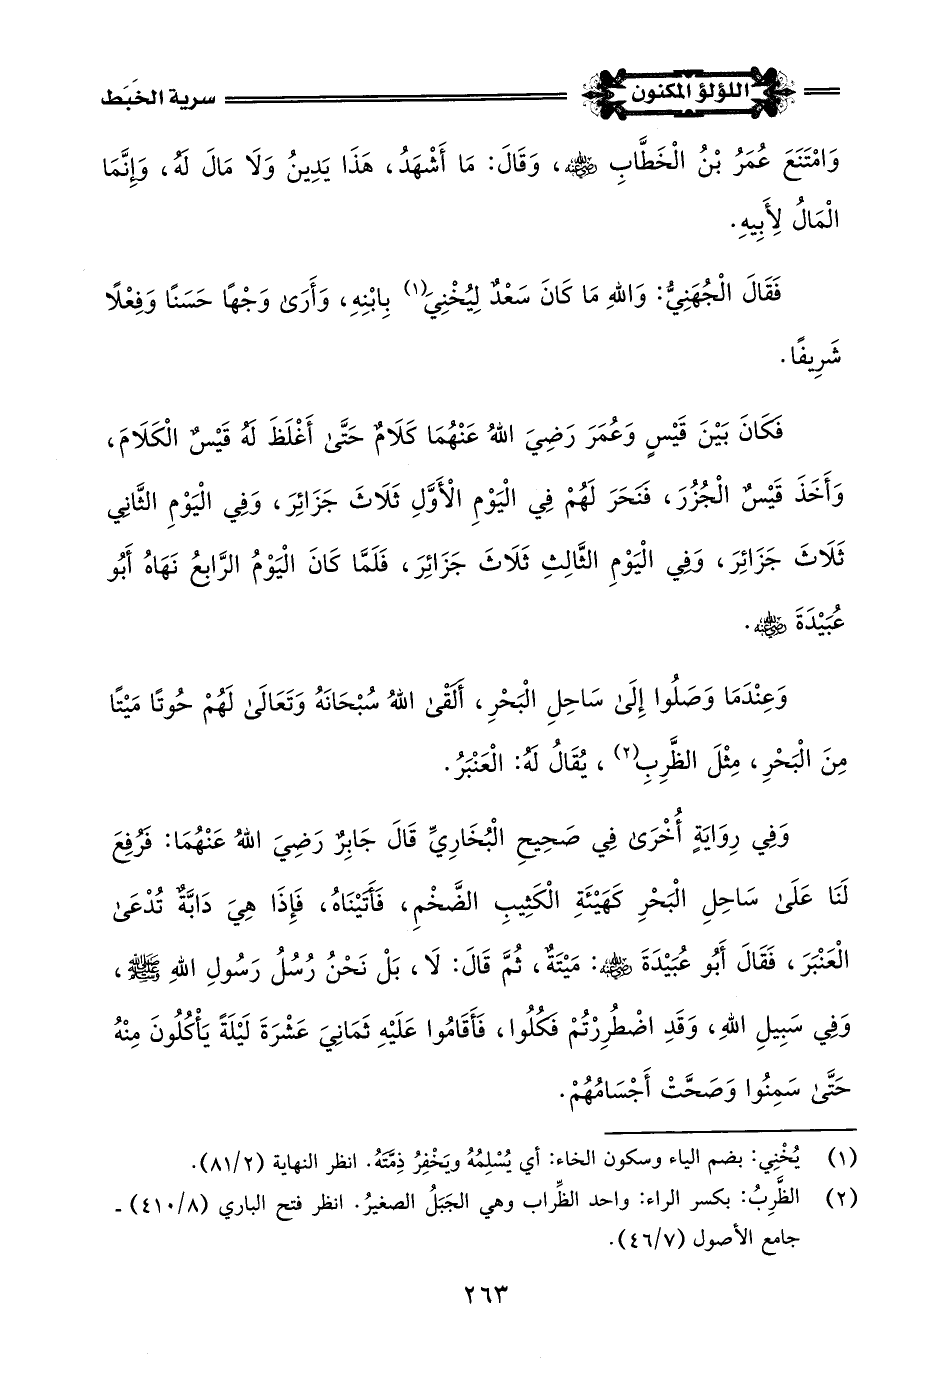 اللؤلؤ المكنون
سرية الخَبَط
وَامْتَنَعَ عُمَرُ بْنُ الْخَطَّابِ رضي الله عنه، وَقَالَ: مَا أَشْهَدُ، هَذَا يَدِينُ وَلَا مَالَ لَهُ، وَإِنَّمَا
الْمَالُ لِأَبِيهِ.
فَقَالَ الْجُهَنِيُّ: وَاللهِ مَا كَانَ سَعْدٌ لِيُخْنِيَ(١) بِابْنِهِ، وَأَرَىٰ وَجْهًا حَسَنًا وَفِعْلًا
شَرِيفًا.
فَكَانَ بَيْنَ قَيْسٍ وَعُمَرَ رَضِيَ اللهُ عَنْهُمَا كَلَامٌ حَتَّىٰ أَغْلَظَ لَهُ قَيْسٌ الْكَلَامَ،
وَأَخَذَ قَيْسٌ الْجُزُرَ، فَنَحَرَ لَهُمْ فِي الْيَوْمِ الْأَوَّلِ ثَلَاثَ جَزَائِرَ، وَفِي الْيَوْمِ الثَّانِي
ثَلَاثَ جَزَائِرَ، وَفِي الْيَوْمِ الثَّالِثِ ثَلَاثَ جَزَائِرَ، فَلَمَّا كَانَ الْيَوْمُ الرَّابِعُ نَهَاهُ أَبُو
عُبَيْدَةَ رضي الله عنه.
وَعِنْدَمَا وَصَلُوا إِلَىٰ سَاحِلِ الْبَحْرِ، أَلْقَىٰ اللهُ سُبْحَانَهُ وَتَعَالَىٰ لَهُمْ حُوتًا مَيْتًا
مِنَ الْبَحْرِ، مِثْلَ الظَّرِبِ(٢)، يُقَالُ لَهُ: الْعَنْبَرُ.
وَفِي رِوَايَةٍ أُخْرَىٰ فِي صَحِيحِ الْبُخَارِيِّ قَالَ جَابِرٌ رَضِيَ اللهُ عَنْهُمَا: فَرُفِعَ
لَنَا عَلَىٰ سَاحِلِ الْبَحْرِ كَهَيْئَةِ الْكَثِيبِ الضَّخْمِ، فَأَتَيْنَاهُ، فَإِذَا هِيَ دَابَّةٌ تُدْعَىٰ
الْعَنْبَرَ، فَقَالَ أَبُو عُبَيْدَةَ رضي الله عنه: مَيْتَةٌ، ثُمَّ قَالَ: لَا، بَلْ نَحْنُ رُسُلُ رَسُولِ اللهِ ﷺ،
وَفِي سَبِيلِ اللهِ، وَقَدِ اضْطُرِرْتُمْ فَكُلُوا، فَأَقَامُوا عَلَيْهِ ثَمَانِيَ عَشْرَةَ لَيْلَةً يَأْكُلُونَ مِنْهُ
حَتَّىٰ سَمِنُوا وَصَحَّتْ أَجْسَامُهُمْ.
(١) يُخْنِي: بضم الياء وسكون الخاء: أي يُسْلِمُهُ ويَخْفِر ذِمَّتَهُ. انظر النهاية (٨١/٢).
(٢) الظَّرِبُ: بكسر الراء: واحد الظِّراب وهي الجَبَلُ الصغيرُ. انظر فتح الباري (٤١٠/٨) ـ
جامع الأصول (٤٦/٧).
٢٦٣